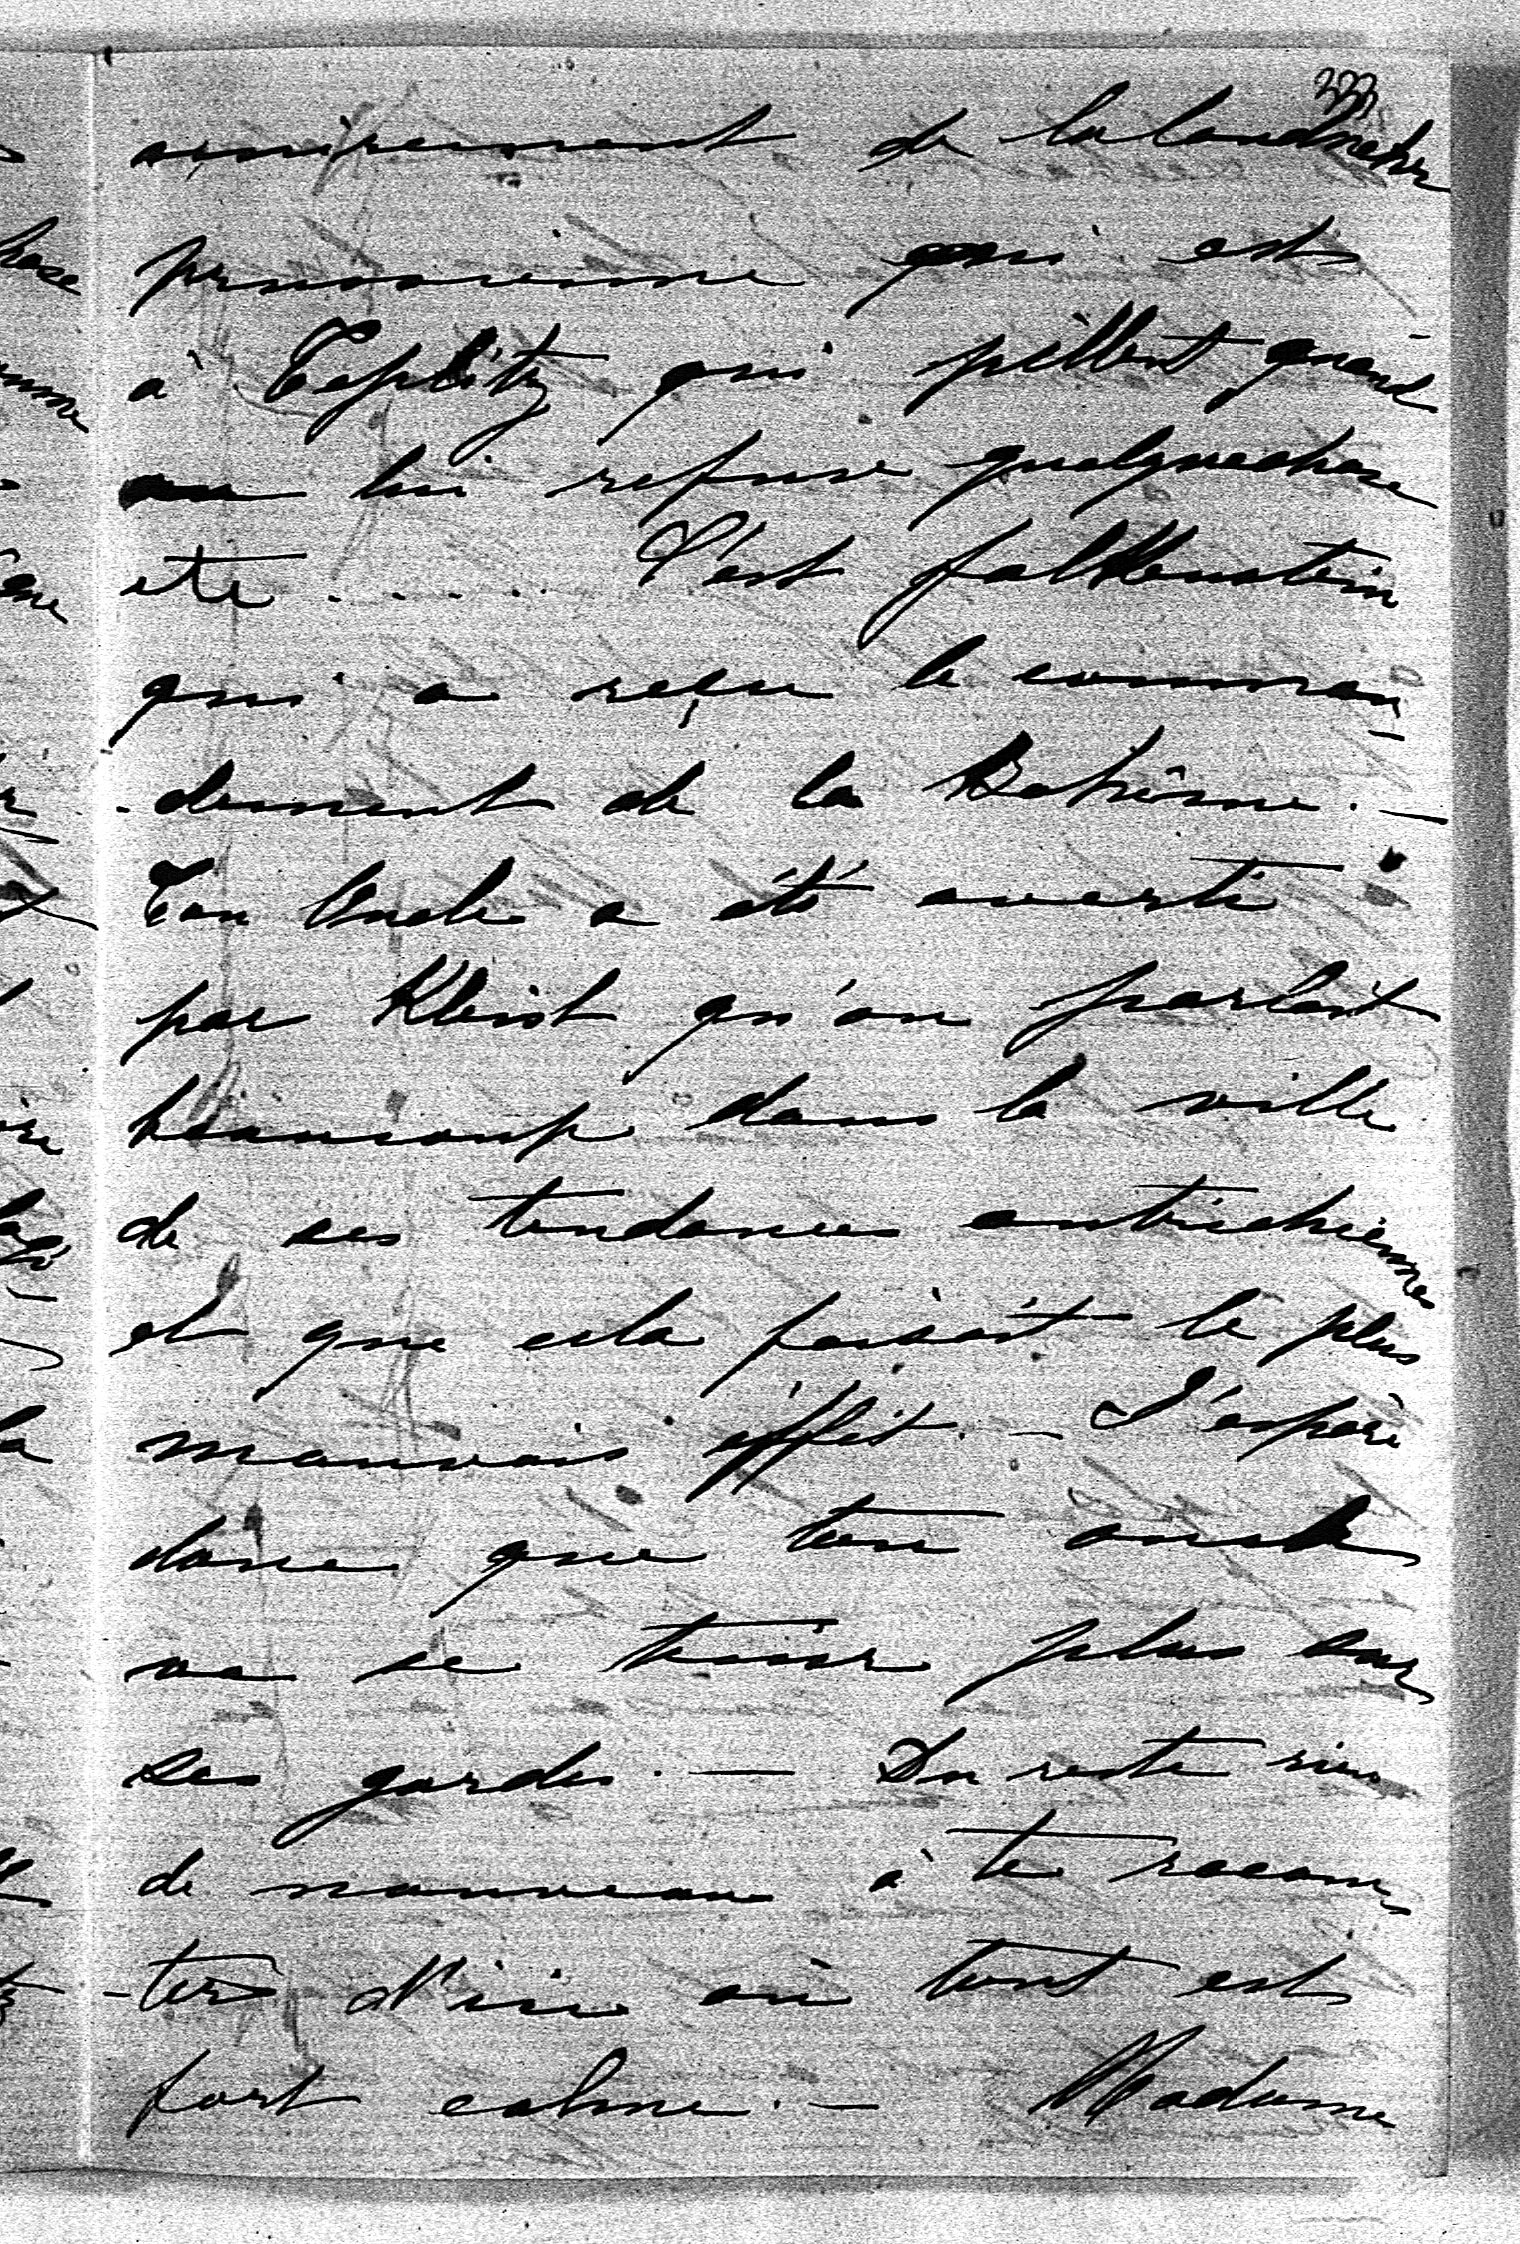 333
amèrement de la landwehr
prussienne qui est
à Teplitz qui pillent quand
on lui refuse quelquechose
etc..... C'est falkenstein
qui a reçu le comman
-dement de la Bohême. —
Ton Oncle a été averti
par Kleist qu'on parlait
beaucoup dans la ville
de ses tendances autrichiennes
et que cela faisait le plus
mauvais éffét. — J'espère
donc que ton oncle
va se tenir plus sur
ses gardes. — Du reste rien
de nouveau à te racon
-ter d'ici où tout est
fort calme. — Madame